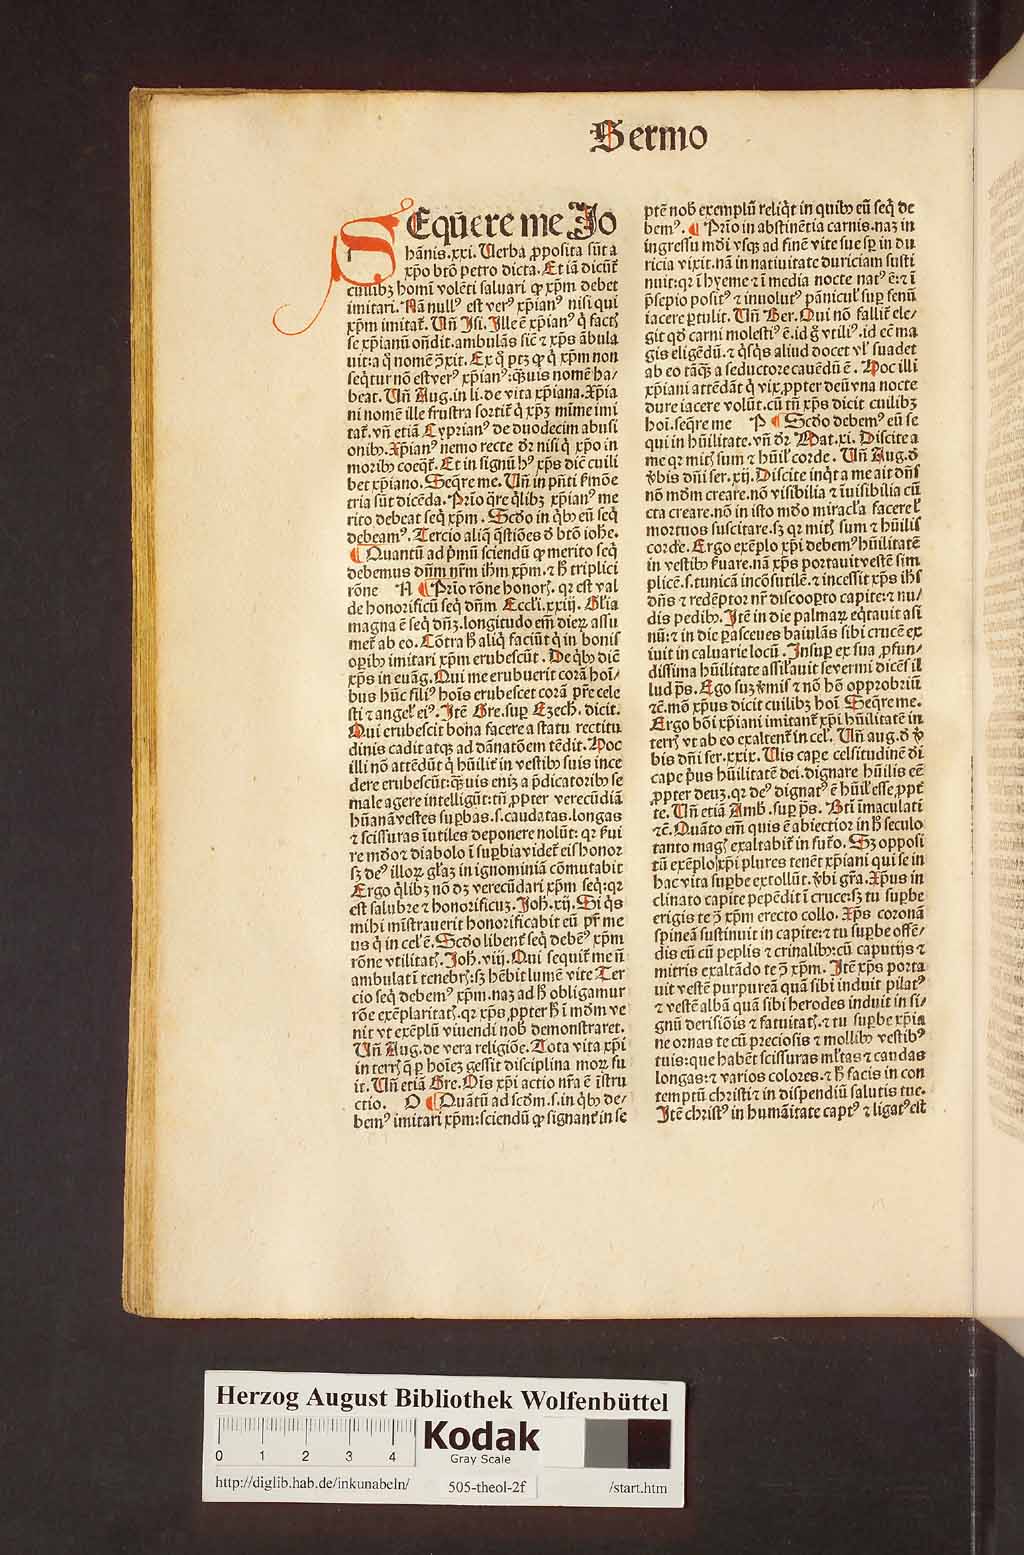 Sermo
SEqūere me Jo
hānis.xxi. Uerba ꝓposita sūt a
xp̄o btō petro dicta. Et iā dicūt᷑
cuilibꝫ homī volēti saluari ꝙ xp̄m debet
imitari. Nā nullꝰ est verꝰ xp̄ianꝰ nisi qui
xp̄m imitat᷑. Uñ Isi. Ille ē xp̄ianꝰ q̇ factꝭ
se xp̄ianū oñdit. ambulās sic̄ ⁊ xp̄s ābula
uit: a q̇ nomē ꝯ̄xit. Ex q̇ ptꝫ ꝙ q̇ xp̄m non
seq̇tur nō est verꝰ xp̄ianꝰ: qͣ̄uis nomē ha⸗
beat. Uñ Aug. in li. de vita xp̄iana. Xp̄ia
ni nomē ille frustra sortit᷑ q̇ xp̄ꝫ mīme imi
tat᷑. vñ etiā Cyprianꝰ de duodecim abusi
onibꝰ. Xp̄ianꝰ nemo recte dr̄ nisi q̇ xp̄o in
moribꝰ coeq̇t᷑. Et in signū hꝰ xp̄s dic̄ cuili
bet xp̄iano. Seq̇re me. Uñ in pñti f̄mōe
tria sūt dicēda. Prīo q̇re q̇libꝫ xp̄ianꝰ me
rito debeat seq̇ xp̄m. Scdo in q̇bꝰ eū seq̇
debeamꝰ. Tercio aliq̇ q̄stiōes d̄ btō iohē.
¶ Quantū ad p̄mū sciendū ꝙ merito seq̇
debemus dñm nr̄m ihm̄ xp̄m. ⁊ h̄ triplici
rōne N ¶ Prīo rōne honorꝭ. qꝛ est val
de honorificū seq̇ dñm Eccłi. xxiij. Głia
magna ē seq̇ dñꝫ. longitudo em̄ dieꝝ assu
met᷑ ab eo. Cōtra h̄ aliq̇ faciūt q̇ in bonis
oꝑibꝰ imitari xp̄m erubescūt. De q̇bꝰ dic̄
xp̄s in euāg. Qui me erubuerit corā hoī⸗
bus hūc filiꝰ hoīs erubescet corā pr̄e cele
sti ⁊ angeł eiꝰ. Itē Gre. suꝑ Ezech. dicit.
Qui erubescit bona facere a statu rectitu
dinis cadit atqꝫ ad dānatōem tēdit. Hoc
illi nō attēdūt q̇ hūilit᷑ in vestibꝰ suis ince
dere erubescūt: qͣ̄uis eniꝫ a p̄dicatoribꝰ se
male agere intelligūt: tñ ꝓpter verecūdiā
hūanā vestes suꝑbas. s. caudatas. longas
⁊ scissuras īutiles deponere nolūt: qꝛ f̄ui
re mdo ⁊ diabolo ī suꝑbia videt᷑ eis honor
sꝫ deꝰ illoꝝ gł̄aꝫ in ignominiā cōmutabit
Ergo q̇libꝫ nō dꝫ verecūdari xp̄m seq̇: qꝛ
est salubre ⁊ honorificuꝫ. Joh. xij. Si q̇s
mihi mīstrauerit honorificabit eū pr̄ me
us q̇ in cel'ē. Scdo libent᷑ seq̇ debēꝰ xp̄m
rōne vtilitatꝭ. Joh. viij. Qui sequit᷑ me ñ
ambulat ī tenebrꝭ: sꝫ hēbit lumē vite Ter
cio seq̇ debemꝰ xp̄m. naꝫ ad h̄ obligamur
rōe exēplaritatꝭ. qꝛ xp̄s ꝓpter h̄ ī mdm ve
nit vt exēplū viuendi nob̄ demonstraret.
Uñ Aug. de vera religiōe. Tota vita xp̄i
in terrꝭ q̄ ꝑ hoīeꝫ gessit disciplina moꝝ fu
it. Uñ etiā Gre. Ois xp̄i actio nr̄a ē īstru
ctio. O ¶ Quātū ad scd̄m. s. in q̇bꝰ de⸗
bemꝰ imitari xp̄m: sciendū ꝙ signant᷑ in se
ptē nob̄ exemplū reliq̇t in quibꝰ eū seq̇ de
bemꝰ. ¶ Prīo in abstinētia carnis. naꝫ in
ingressu mdi vsqꝫ ad finē vite sue sꝑ in du
ricia vixit. nā in natiuitate duriciam susti
nuit: qꝛ ī hyeme ⁊ ī media nocte natꝰ ē: ⁊ ī
p̄sepio positꝰ ⁊ inuolutꝰ pānicul' suꝑ fenū
iacere ꝑtulit. Uñ Ber. Qui nō fallit᷑ ele⸗
git qd carni molestiꝰ ē. id g̊ vtiliꝰ. id eē ma
gis eligēdū. ⁊ q̇sq̇s aliud docet vl' suadet
ab eo tāqꝫ a seductore cauēdū ē. Hoc illi
xp̄iani attēdāt q̇ vix ꝓpter deū vna nocte
dure iacere volūt. cū tñ xp̄s dicit cuilibꝫ
hoī. seq̇re me P ¶ Scdo debemꝰ eū se
qui in hūilitate. vñ dr̄ Mat. xi. Discite a
me qꝛ mitꝭ sum ⁊ hūil' corde. Uñ Aug. d̄
v̄bis dñi ser. xij. Discite inq̇t a me ait dñs
nō mdm creare. nō visibilia ⁊ īuisibilia cū
cta creare. nō in isto mdo miracła facere ł
mortuos suscitare. sꝫ qꝛ mitꝭ sum ⁊ hūilis
corde. Ergo exēplo xp̄i debemꝰ hūilitatē
in vestibꝰ f̄uare. nā xp̄s portauit vestē sim
plicē. s. tunicā incōsutilē. ⁊ incessit xp̄s ihs̄
dñs ⁊ redēptor nr̄ discooꝑto capite: ⁊ nu⸗
dis pedibꝰ. Itē in die palmaꝝ eq̇tauit asi
nū: ⁊ in die ꝑasceues baiulās sibi crucē ex
iuit in caluarie locū. Insuꝑ ex sua ꝓfun⸗
dissima hūilitate assil'auit se vermi dicēs il
lud ps̄. Ego suꝫ v̄mis ⁊ nō hō opprobriū
⁊c̄. mō xp̄us dicit cuilibꝫ hoī Seq̇re me.
Ergo bōi xp̄iani imitant᷑ xp̄i hūilitatē in
terrꝭ vt ab eo exaltent᷑ in cel'. Uñ aug. d̄ v̄
bis dñi ser. xxix. Uis cape celsitudinē di
cape p̄us hūilitatē dei. dignare hūilis eē
ꝓpter deuꝫ. qꝛ deꝰ dignatꝰ ē hūil'esse ꝓpt᷑
te. Uñ etiā Amb. suꝑ ps̄. Bti īmaculati
⁊c̄. Quāto em̄ quis ē abiectior in h̄ seculo
tanto magꝭ exaltabit᷑ in futo. Sꝫ opposi
tū exēploꝝ xp̄i plures tenēt xp̄iani qui se in
hac vita suꝑbe extollūt. v̄bi gr̄a. Xp̄us in
clinato capite pepēdit ī cruce: sꝫ tu suꝑbe
erigis te ꝯ̄ xp̄m erecto collo. Xp̄s coronā
spineā sustinuit in capite: ⁊ tu suꝑbe offē⸗
dis eū cū peplis ⁊ crinalibꝰ: cū caputijs ⁊
mitris exaltādo te ꝯ̄ xp̄m. Itē xp̄s porta
uit vestē purpureā quā sibi induit pilatꝰ
⁊ vestē albā quā sibi herodes induit in si⸗
gnū derisiōis ⁊ fatuitatꝭ. ⁊ tu suꝑbe xp̄ia
ne ornas te cū preciosis ⁊ mollibꝰ vestibꝰ
tuis: que habēt scissuras mltas ⁊ caudas
longas: ⁊ varios colores. ⁊ h̄ facis in con
temptū christi ⁊ in dispendiū salutis tue.
Itē christꝰ in humāitate captꝰ ⁊ ligatꝰ est
Herzog August Bibliothek Wolfenbüttel
0 1 2 3 4
Kodak
Gray Scale
http://diglib.hab.de/inkunabeln/ 505-theol-2f /start.htm